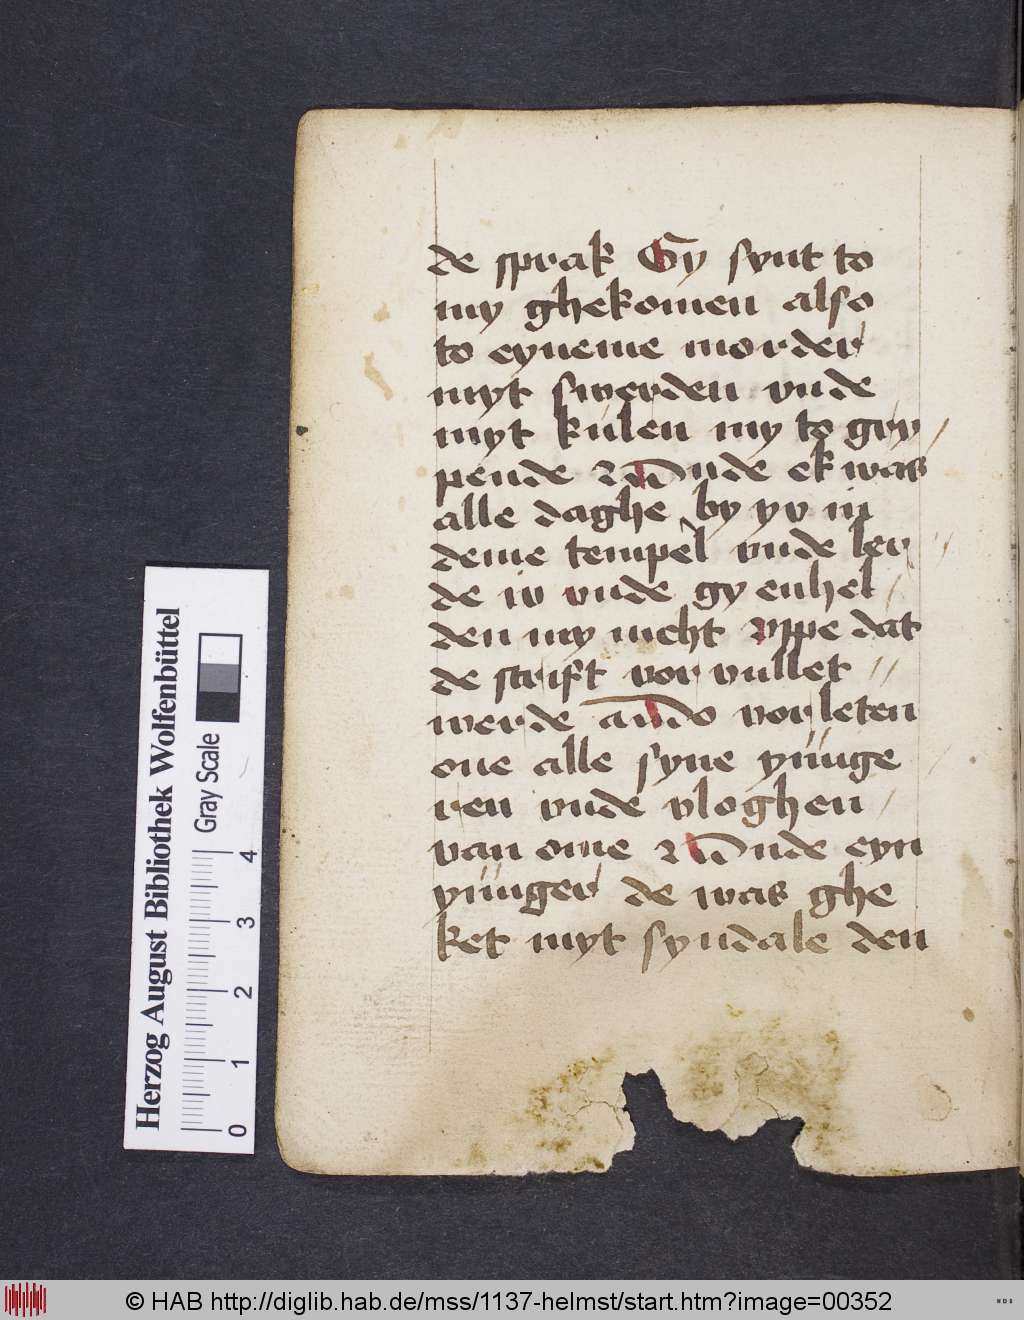 de sprak Gy synt to
my ghekomen also
to eyneme morder
myt swerden vnde
myt kulen my to gry
pende Vnde ek was
alle daghe by yv in
deme tempel vnde ler
de iv vnde gy enhel
den my nicht vppe dat
de scrift vor vullet
werde do vorleten
one alle syne yunge
ren vnde vloghen
van ome Vnde eyn
yunger de was ghe
ket myt syndale den
Herzog August Bibliothek Wolfenbüttel
Gray Scale
0 1 2 3 4
© HAB http://diglib.hab.de/mss/1137-helmst/start.htm?image=00352